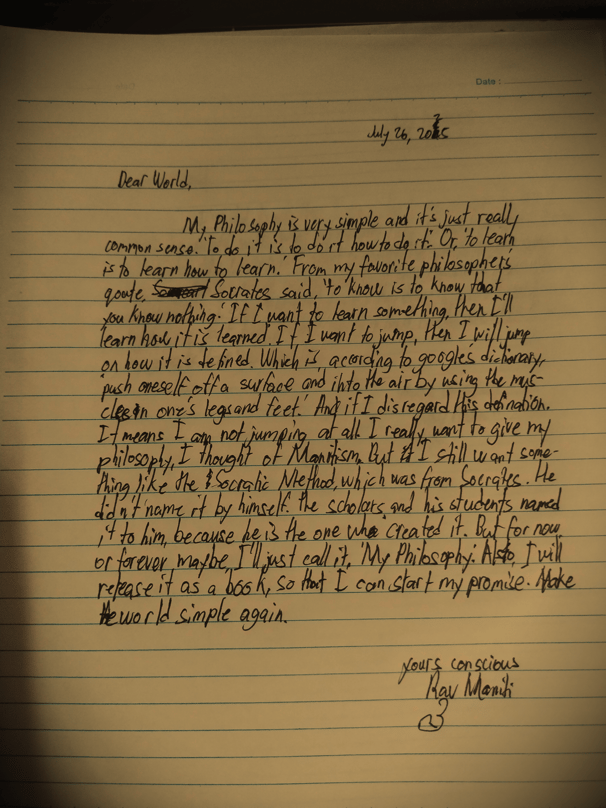 Date:
July 26, 2025
Dear World,
My Philosophy is very simple and it's just really
common sense. 'To do it is to do it how to do it.' Or, 'to learn
is to learn how to learn.' From my favorite philosopher's
qoute, Socrates said, 'to know is to know that
you know nothing.' If I want to learn something, then I'll
learn how it is learned. If I want to jump, then I will jump
on how it is defined. Which is, according to googles dictionary,
'push oneself off a surface and into the air by using the mus-
cles in one's legs and feet.' And if I disregard this defination.
It means I am not jumping at all. I really want to give my
philosophy, I thought of Manitism. But I still want some-
thing like the Socratic Method, which was from Socrates. He
didn't name it by himself. the scholars and his students named
it to him, because he is the one who created it. But for now,
or forever maybe, I'll just call it, 'My Philosophy.' Also, I will
release it as a book, so that I can start my promise. Make
the world simple again.
yours conscious